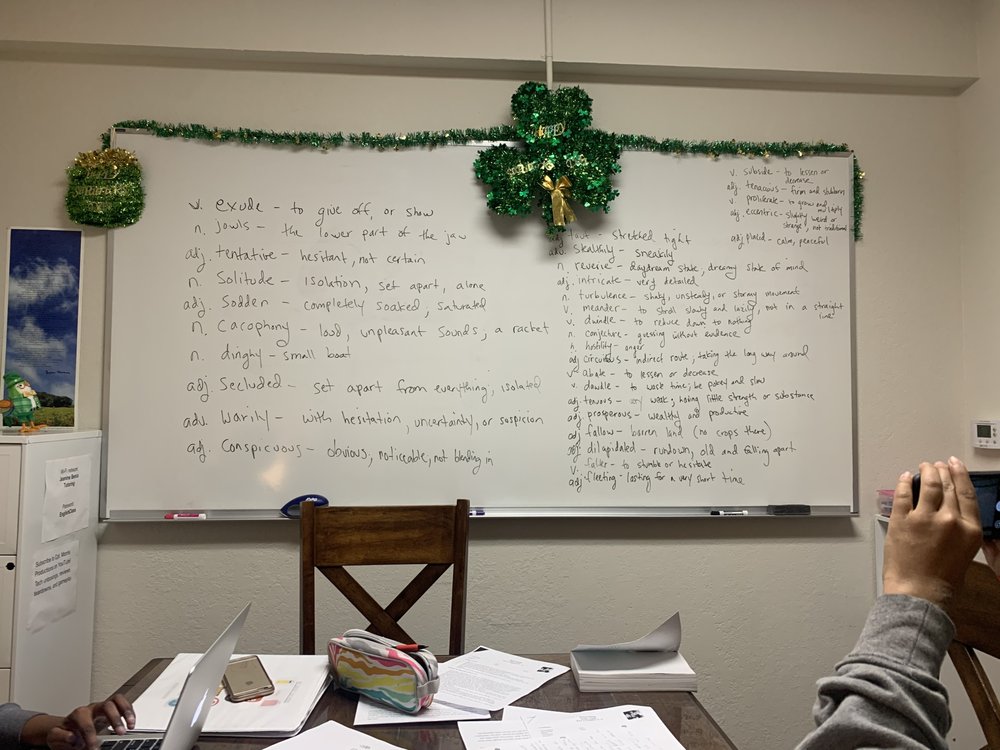 v. exude - to give off, or show
n. jowls - the lower part of the jaw
adj. tentative - hesitant, not certain
n. Solitude - isolation, set apart, alone
adj. Sodden - completely soaked, saturated
n. Cacophony - loud, unpleasant sounds, a racket
n. dinghy - small boat
adj. Secluded - set apart from everything; isolated
adv. Warily - with hesitation, uncertainty, or suspicion
adj. Conspicuous - obvious, noticeable, not blending in
v. subside - to lessen or
decrease
adj. tenacious - firm and stubborn
v. proliferate - to grow and
multiply
adj. eccentric - slightly weird or
strange, not traditional
adj placid - calm, peaceful
taut - stretched tight
adv. stealthily - sneakily
n. reverie - daydream state; dreamy state of mind
adj. intricate - very detailed
n. turbulence - shaky, unsteady, or stormy movement
v. meander - to stroll slowly and lazily, not in a straight
line
v. dwindle - to reduce down to nothing
n conjecture - guessing without evidence
n. hostility - anger
adj circuitous - indirect route; taking the long way around
v. abate - to lessen or decrease
v. dawdle - to waste time; be pokey and slow
adj. tenuous - very weak; having little strength or substance
adj. prosperous - wealthy and productive
adj fallow - barren land (no crops there)
adj. dilapidated - rundown, old and falling apart
v. falter - to stumble or hesitate
adj. fleeting - lasting for a very short time
HAPPY
Wi-Fi network:
Jeannine Benta
Tutoring
Password:
EnglishClass
Subscribe to Cpt. Morris
Productions on YouTube
Tech unboxings, reviews
teardowns, and gameplay